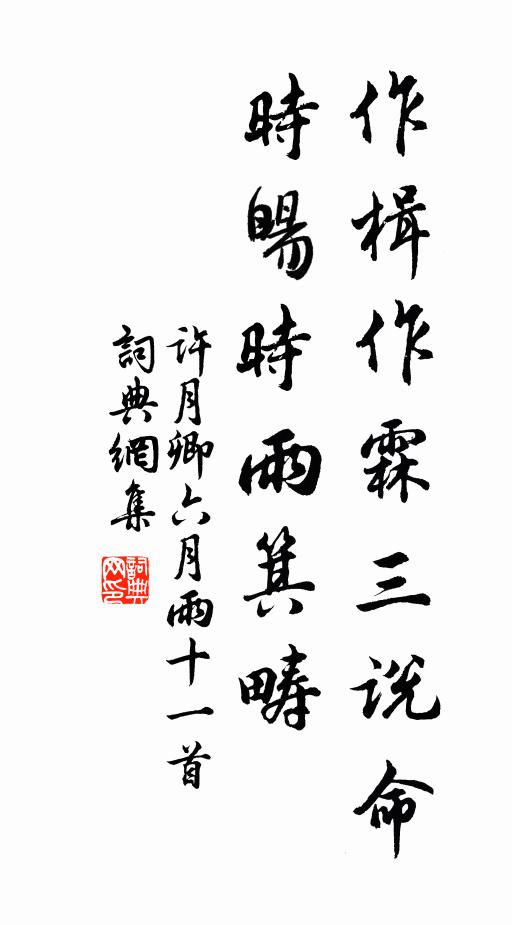 作楫作霖三說命
時暘時雨箕疇
許月卿六月雨十一首
詞典網集
詞典网印